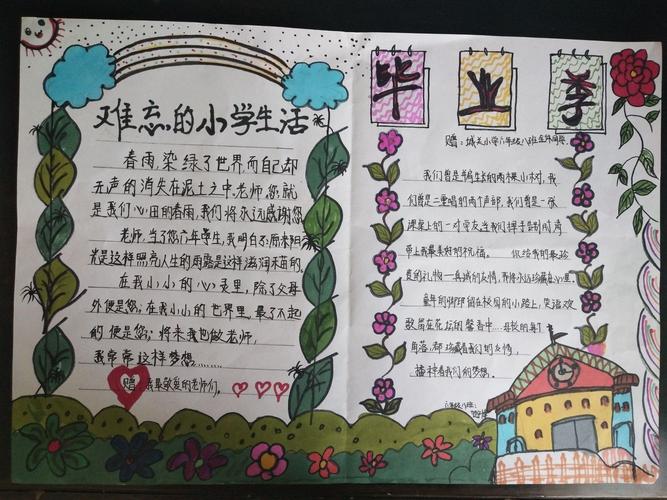 难忘的小学生活
春雨,染绿了世界,而自己却
无声的消失在泥土之中.老师,您就
是我们心田的春雨,我们将永远感谢您
老师,当了您六年学生,我明白了:原来阳
光是这样照亮人生的雨露是这样滋润禾苗的.
在我小小的心灵里,除了父母
外便是您;在我小小的世界里,最了不起
的便是您;将来我也做老师,
我常常这样梦想………
赠:我最敬爱的老师们.
毕业季
赠:城关小学六年级八班全体同学
我们曾是并肩生长的两棵小树,我
们曾是二重唱的两个声部,我们曾是一张
课桌上的一对学友当我们挥手告别时,请
带上我最美好的祝福。 你给我的最珍
贵的礼物—真诚的友情,我将永远珍藏在心里。
童年的脚印留在校园的小路上,笑语欢
歌留在花坛的馨香中…母校的每个
角落,都珍藏着我们的友情,
播种着我们的梦想。
六年级八班: